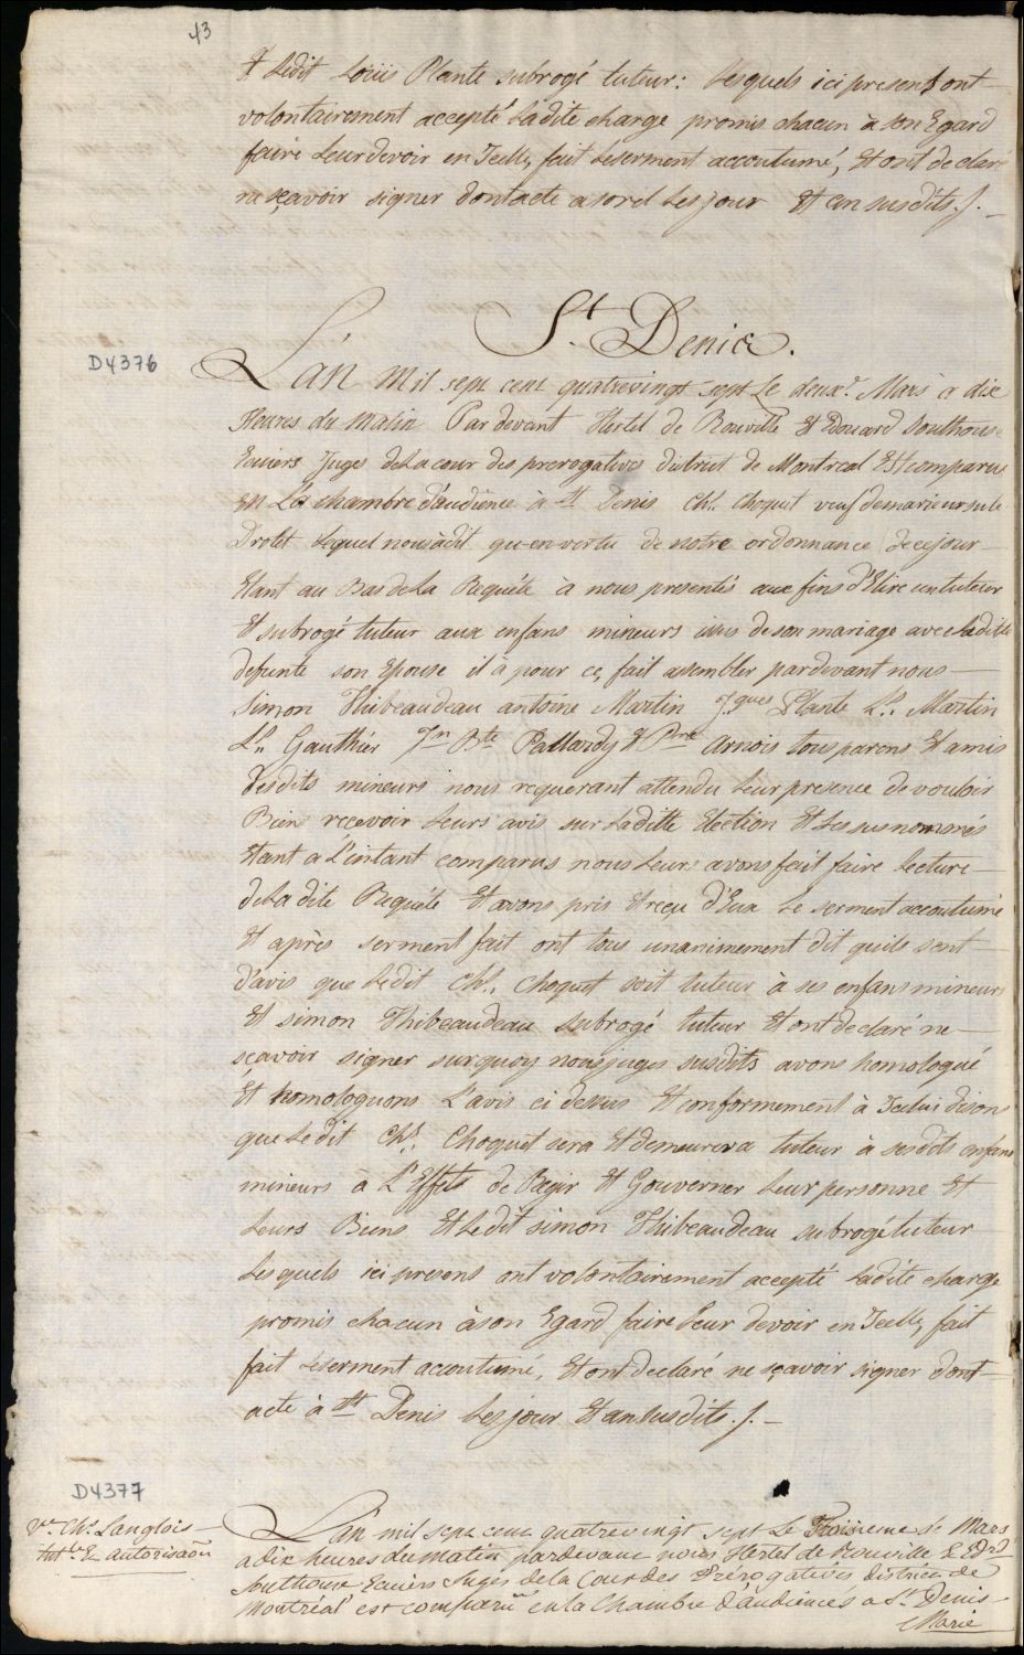 43
& Ledit Loüis Plante subrogé tuteur: Lesquels ici presents ont
volontairement accepté Ladite charge promis chacun à son Egard
faire Leur devoir en Icelle, fait Leserment accoutumé, Et ont declaré
ne sçavoir signer dont acte a sorel Les jour Et an susdits./.
St. Denis.
D4376
L'an mil sept cent quatrevingt sept Le deuxe. Mars à dix
Heures du Matin Par devant Hertel de Rouville Et Edouard Southouse
Ecuiers Juges dela cour des prerogatives district de Montreal Est comparu
En La chambre d'audience à St Denis Chs. Choquet veuf de marie ursule
Drolet Lequel nous à dit qu'en vertu de notre ordonnance de ce jour
Etant au Bas de La Requête à nous presentés aux fins d'Elire un tuteur
Et subrogé tuteur aux enfans mineurs issus de son mariage avec Ladite
defunte son Epouse il à pour ce, fait assembler pardevant nous
Simon Thibeaudeau antoine Martin Jques Plante Ls. Martin
Ls. Gauthier Jn Bte Pallardy & Pre Arnois tous parens Et amis
Desdits mineurs nous requerant attendu Leur presence de vouloir
Bien recevoir Leurs avis sur Laditte Election Et Les susnommés
Etant à L'instant comparus nous Leurs avons fait faire Lecture
de La dite Requête Et avons pris Et reçu d'Eux Le serment accoutumé
Et après serment fait ont tous unanimement dit quils sont
D'avis que Ledit Chs. Choquet soit tuteur à ses enfans mineurs
Et simon Thibeaudeau subrogé tuteur Et ont declaré ne
sçavoir signer surquoy nous juges susdits avons homologué
Et homologuons L'avis ci dessus Et conformement à Icelui disons
que Ledit Chs. Choquet sera Et demeurera tuteur à sesdits enfans
mineurs à L'Effets de Regir Et Gouverner Leur personne Et
Leurs Biens Et Ledit simon Thibeaudeau subrogé tuteur
Lesquels ici presens ont volontairement accepté Ladite charge
promis chacun à son Egard faire Leur devoir en Icelle, fait
fait Leserment accoutumé, Et ont declaré ne sçavoir signer dont
acte à St Denis Les jour Et an susdits./.
D4377
Ve. Chs. Langlois
tutle & autorisaõn
L'an mil sept cent quatrevingt sept Le Troisieme de Mars
a dix heures du matin pardevant nous Hertel de Rouville & Edrd
Southouse Ecuiers Juges de la Cour des Prérogatives district de
Montréal est comparuë en la Chambre d'audiences a St. Denis
Marie